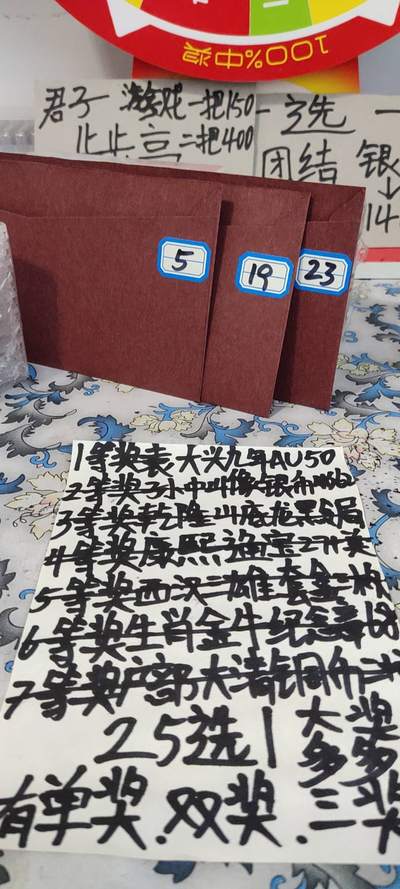 100%中奖
君子一 游戏一把150
北京二把400
一选一
团结 银
14
5
19
23
1等奖袁大头九年AU50
2等奖孙小中山像银币
3等奖乾隆山底龙
4等奖康熙通宝27
5等奖西汉三雄套盒
6等奖生肖金牛纪念
7等奖户部大清铜币
25选1大奖多多
有单奖.双奖.三奖